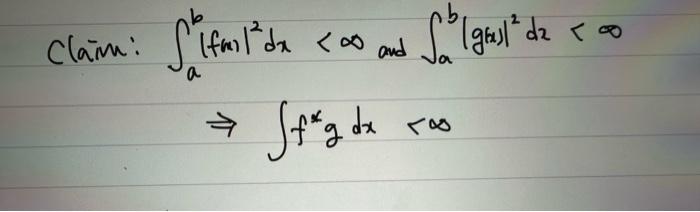 Claim: ∫_a^b |f(x)|² dx < ∞ and ∫_a^b |g(x)|² dx < ∞
⇒ ∫ f* g dx < ∞